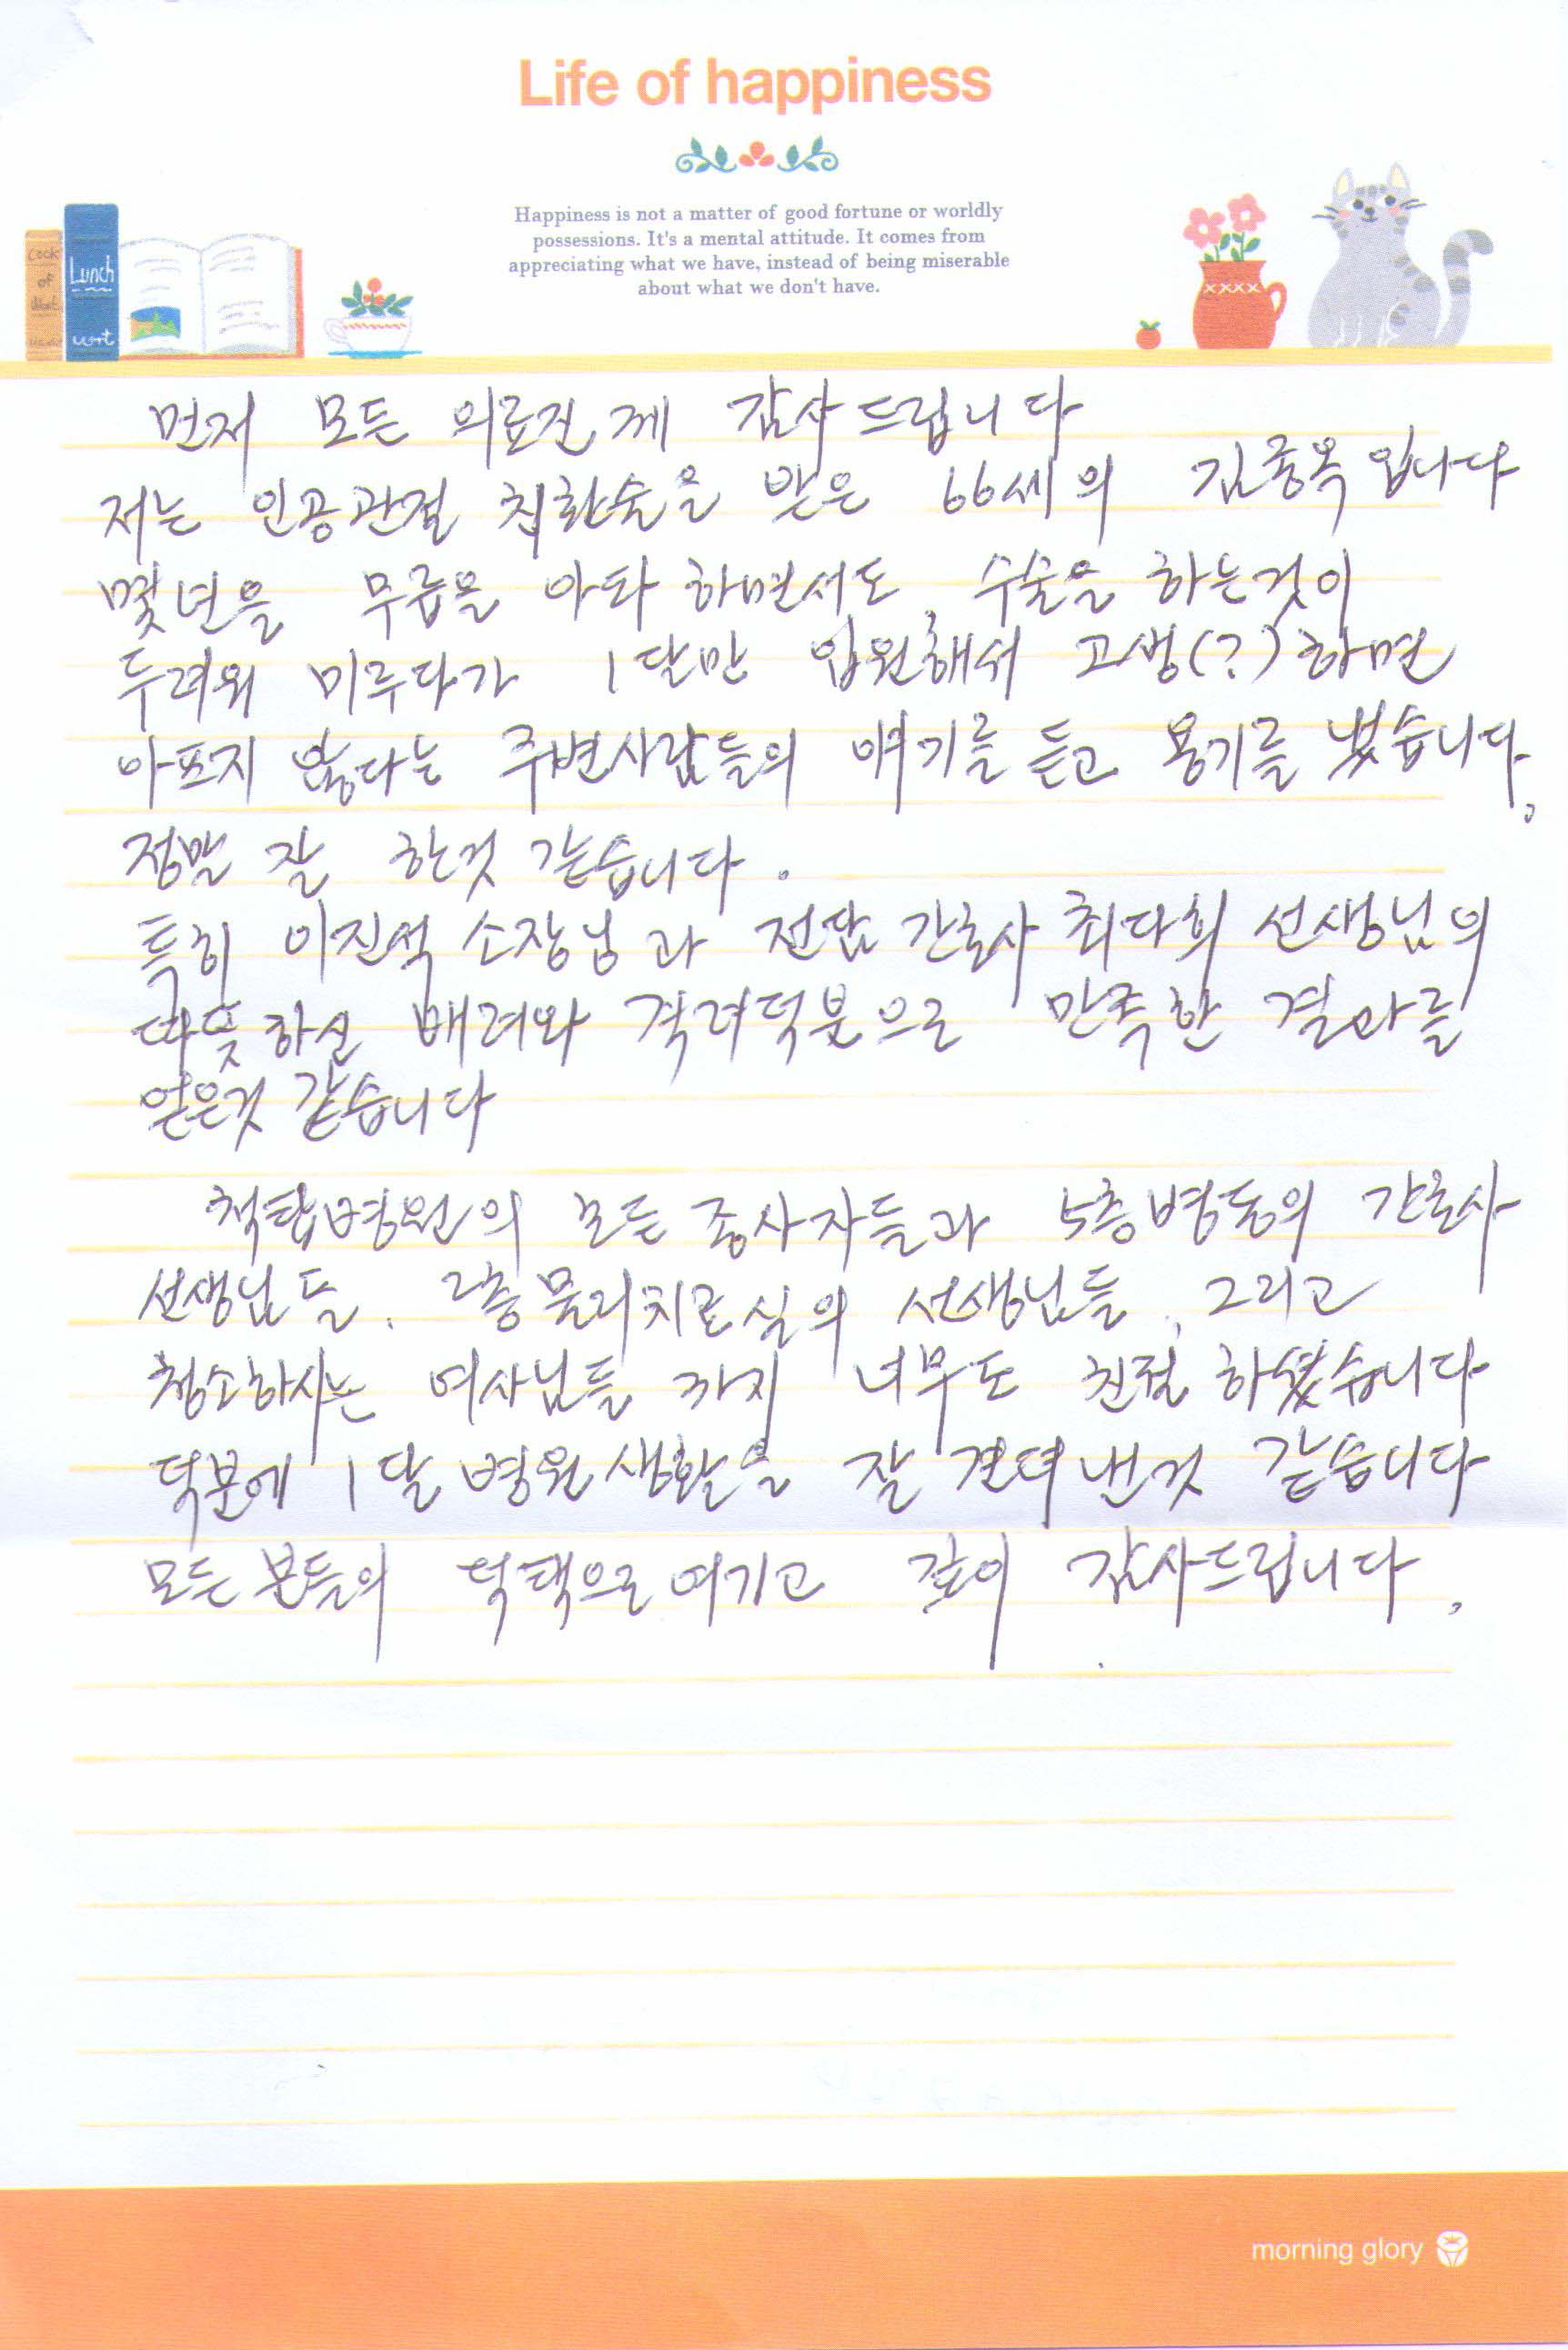 Life of happiness
Happiness is not a matter of good fortune or worldly
possessions. It's a mental attitude. It comes from
appreciating what we have, instead of being miserable
about what we don't have.
Cook
of
Lunch
먼저 모든 의료진께 감사드립니다
저는 인공관절 치환술을 받은 66세의 김종옥입니다
몇년을 무릎을 아파 하면서도, 수술을 하는것이
두려워 미루다가 1달만 입원해서 고생(?)하면
아프지 않다는 주변사람들의 얘기를 듣고 용기를 냈습니다.
정말 잘 한것 같습니다.
특히 이진석 소장님과 전담 간호사 최다희 선생님의
따뜻하신 배려와 격려덕분으로 만족한 결과를
얻은것 같습니다
척탑병원의 모든 종사자들과 5층병동의 간호사
선생님들, 2층 물리치료실의 선생님들, 그리고
청소하시는 여사님들 까지 너무도 친절 하셨습니다
덕분에 1달 병원생활을 잘 견뎌낸것 같습니다
모든분들의 덕택으로 여기고 깊이 감사드립니다.
morning glory